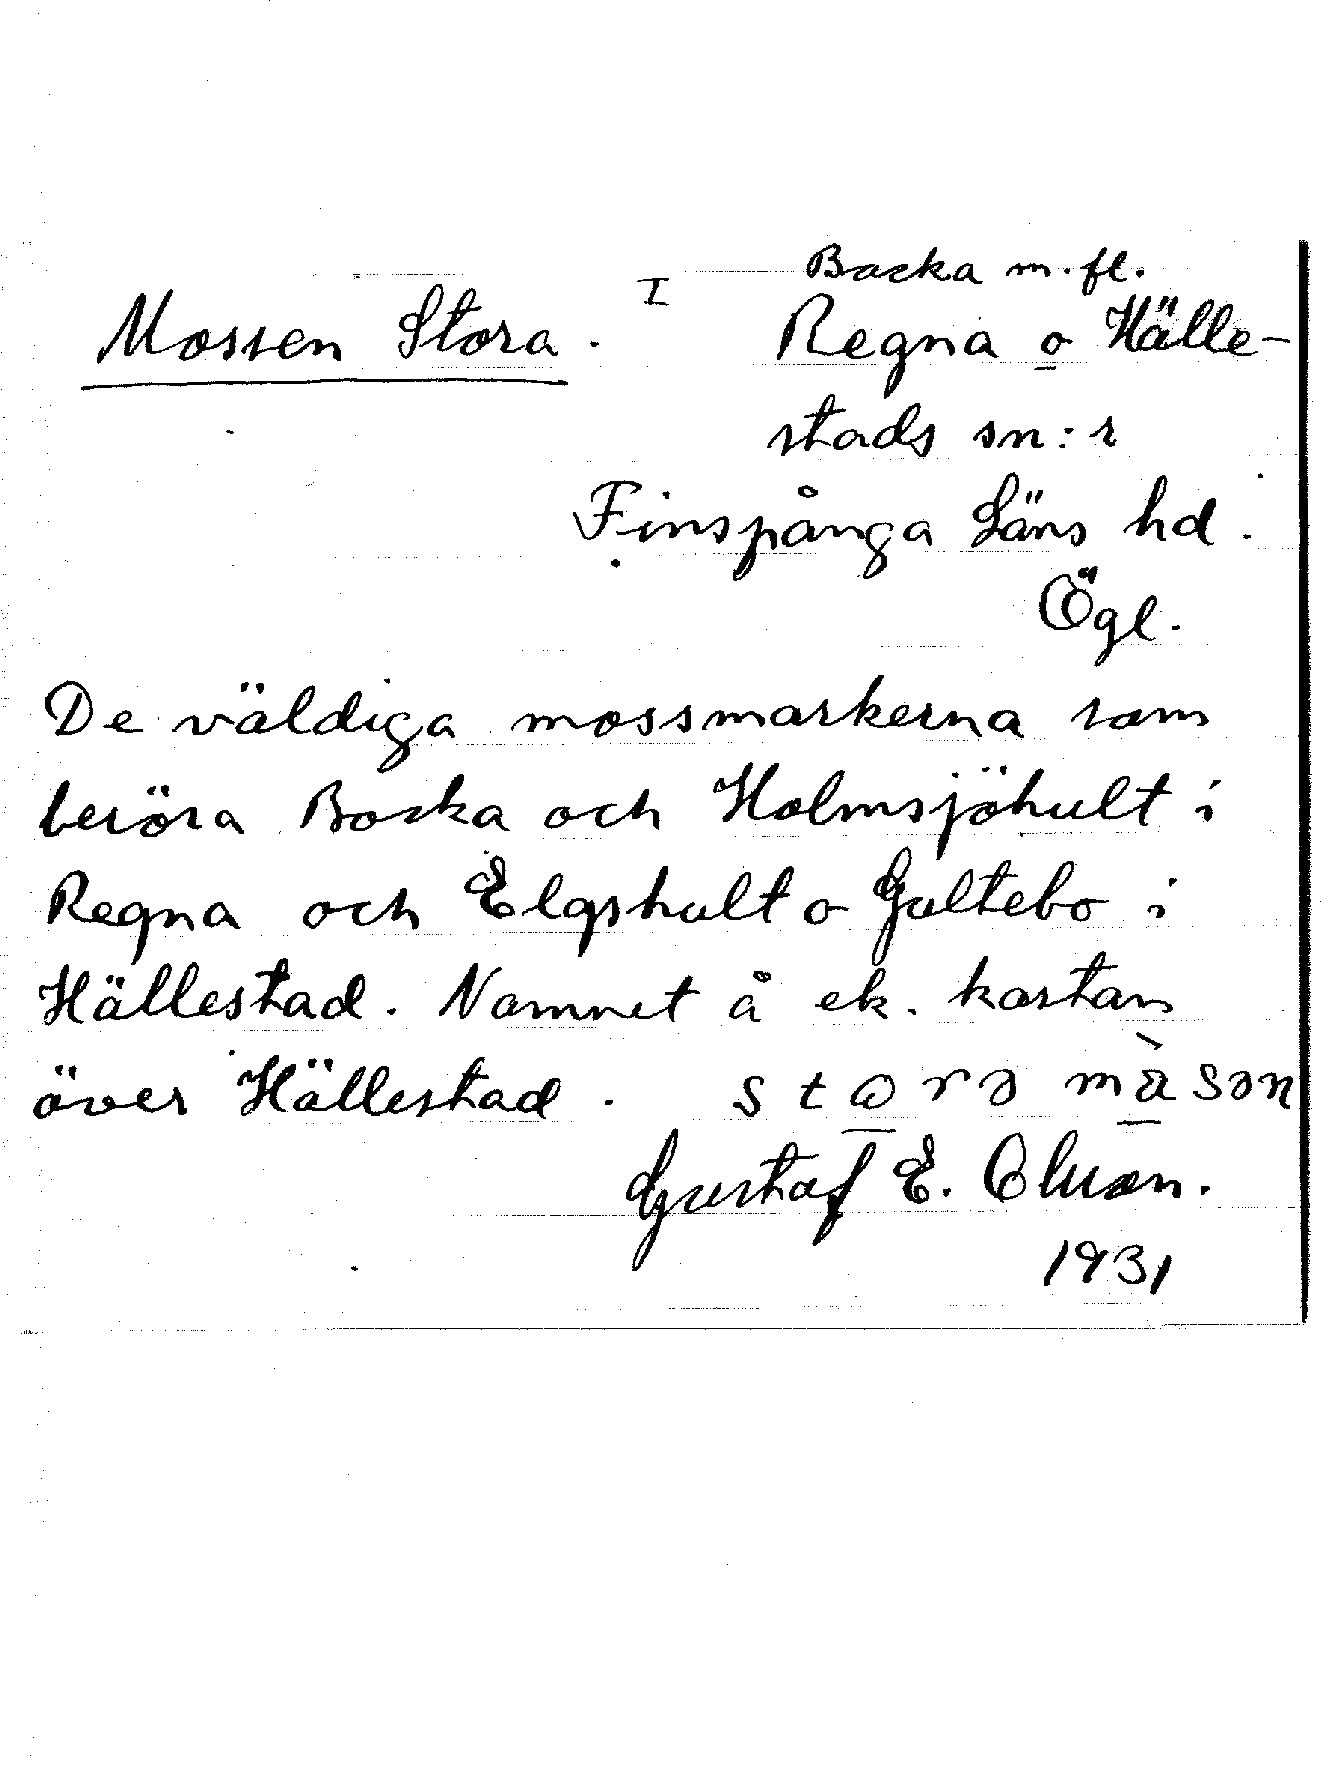 Backa m. fl.
Mossen Stora. I Regna o Hälle-
stads sn:r
Finspånga Läns hd.
Ögl.
De väldiga mossmarkerna som
beröra Backa och Holmsjöhult i
Regna och Elgshult o Galtebo i
Hällestad. Namnet å ek. kartan
över Hällestad.
Gustaf E. Olsson.
1931